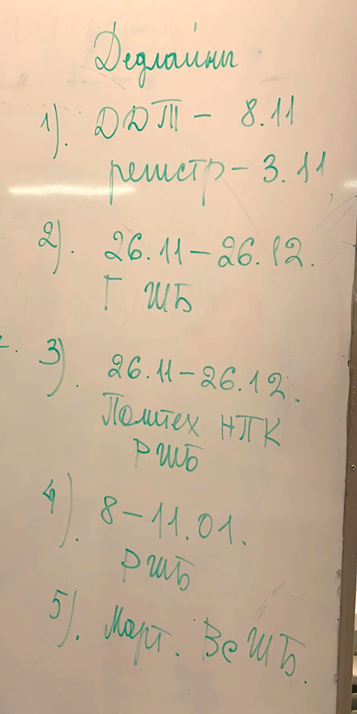 Дедлайны
1). ДДТ – 8.11
регистр – 3.11
2). 26.11 – 26.12.
Г ШБ
3). 26.11 – 26.12.
Политех НПК
РШБ
4). 8 – 11.01.
РШБ
5). Март. ВсШБ.